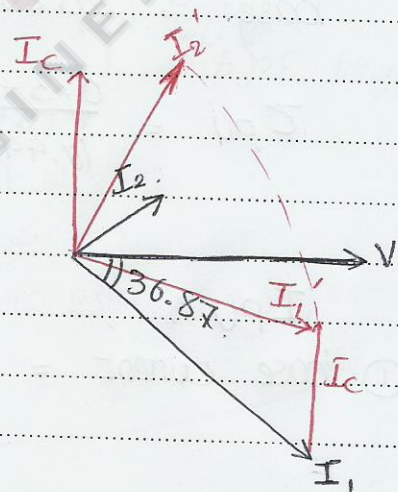 I2'
Ic
I2.
V
36.87
I1'
Ic
I1